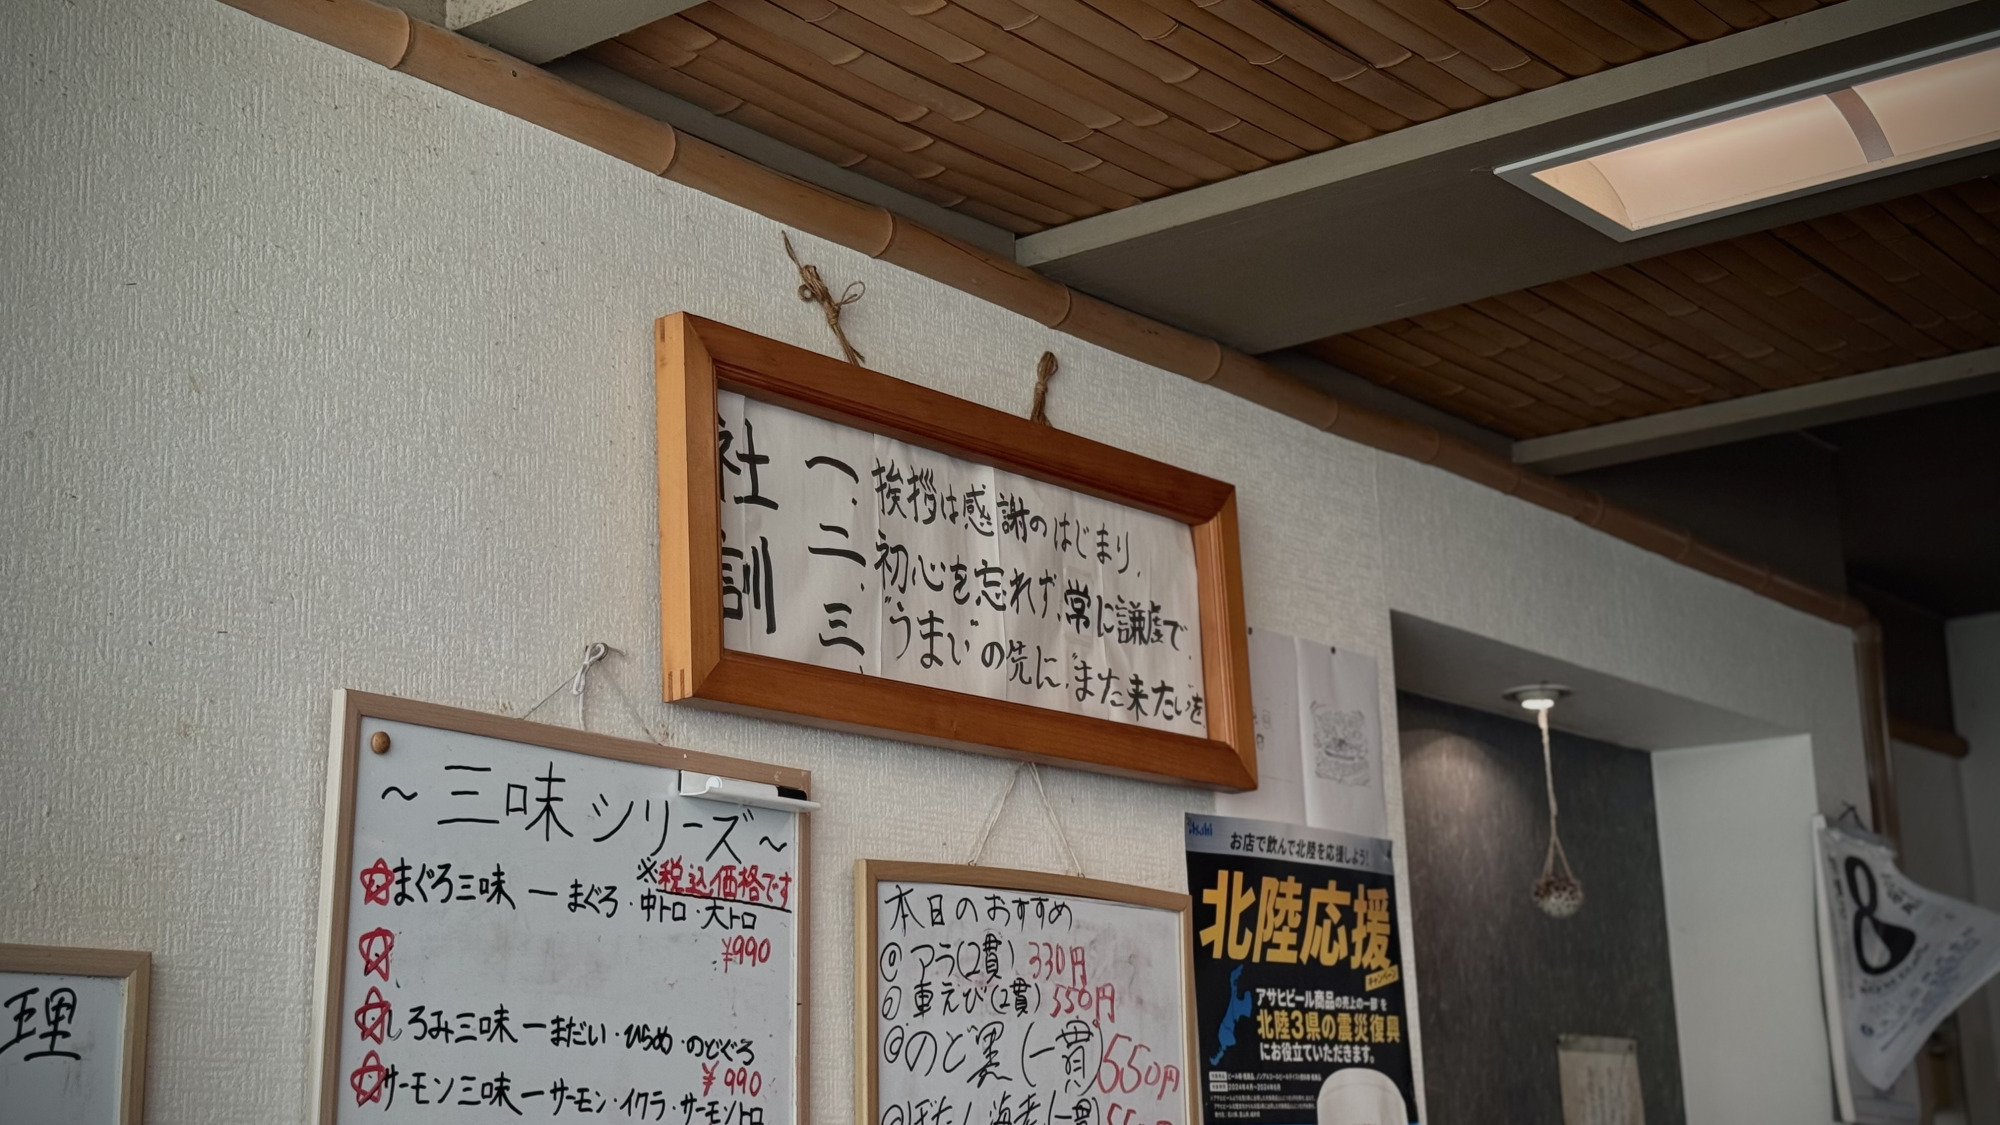 社訓
一、挨拶は感謝のはじまり、
二、初心を忘れず、常に謙虚で、
三、"うまい"の先に、"また来たい"を
～三味シリーズ～
※税込価格です
まぐろ三味ーまぐろ・中トロ・大トロ
¥990
しろみ三味ーまだい・ひらめ・のどぐろ
¥990
サーモン三味ーサーモン・イクラ・サーモントロ
理
本日のおすすめ
アラ(2貫) 330円
車えび(2貫) 550円
のど黒(一貫) 550円
ぼたん海老(一貫)
Asahi
お店で飲んで北陸を応援しよう!
北陸応援
キャンペーン
アサヒビール商品の売上の一部を
北陸3県の震災復興
にお役立ていただきます。
8